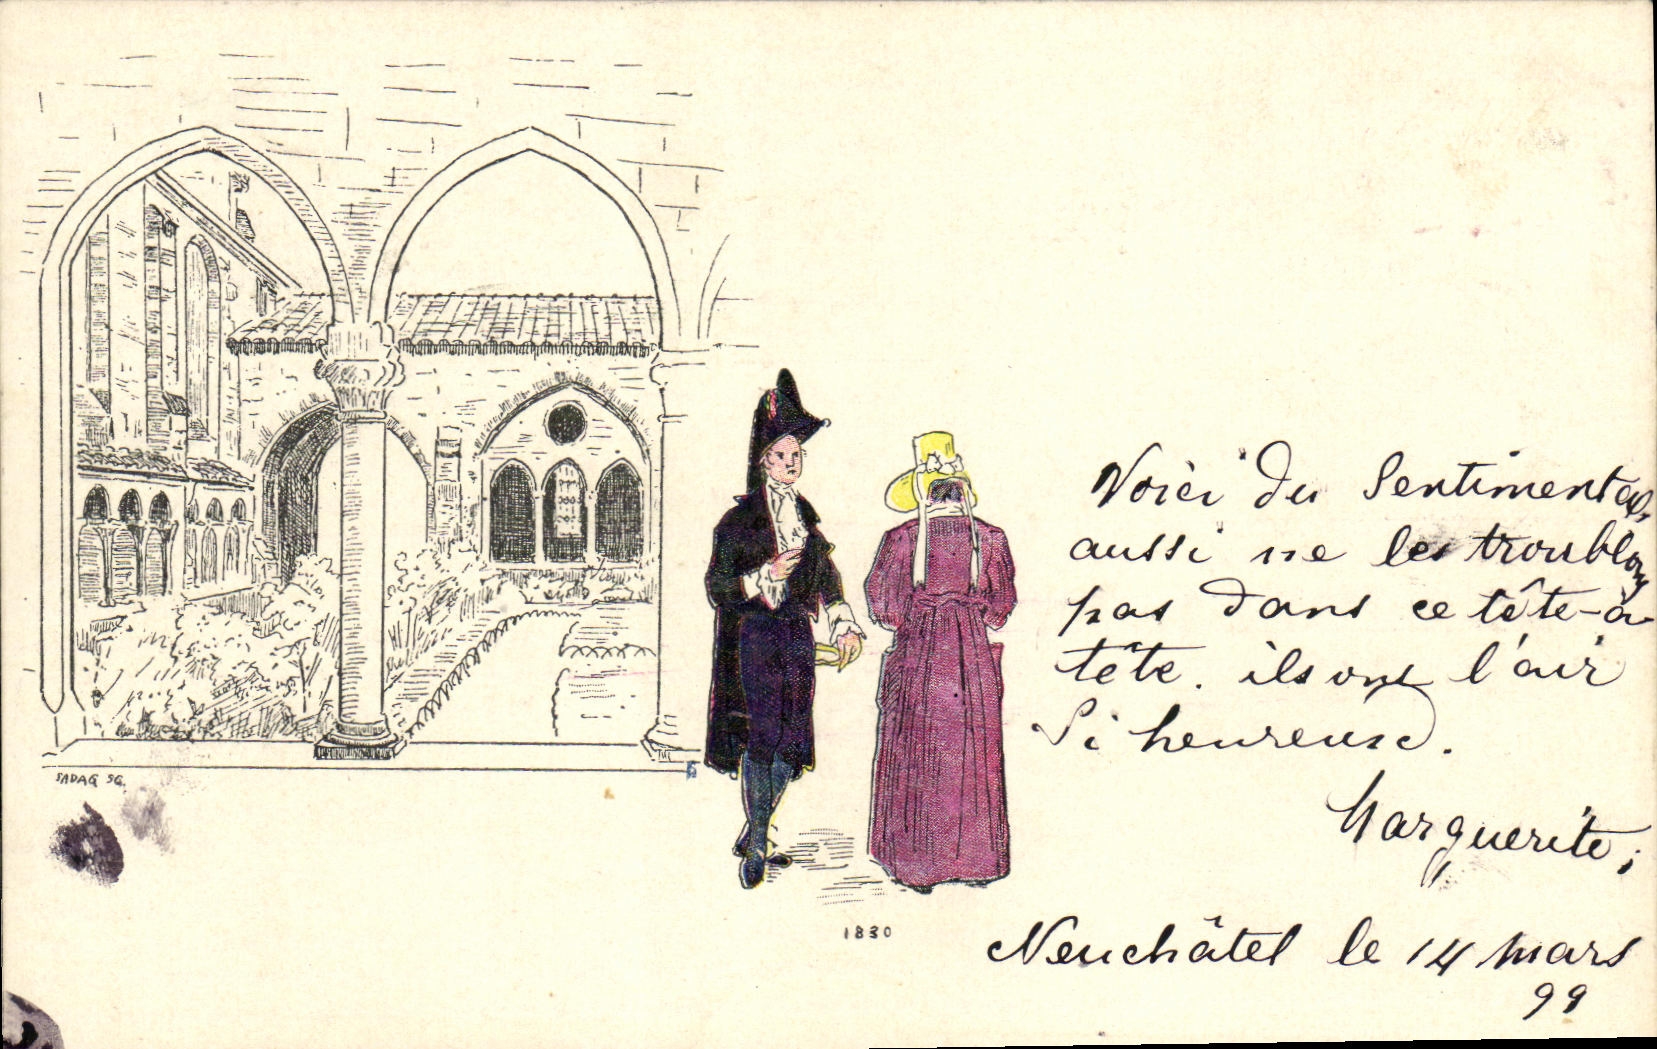 Voici du Sentimental,
aussi ne les troublons
pas dans ce tête-à-
tête. ils ont l'air
Si heureuse.
Marguerite,
SADAG SG.
1830
Neuchâtel le 14 mars
99